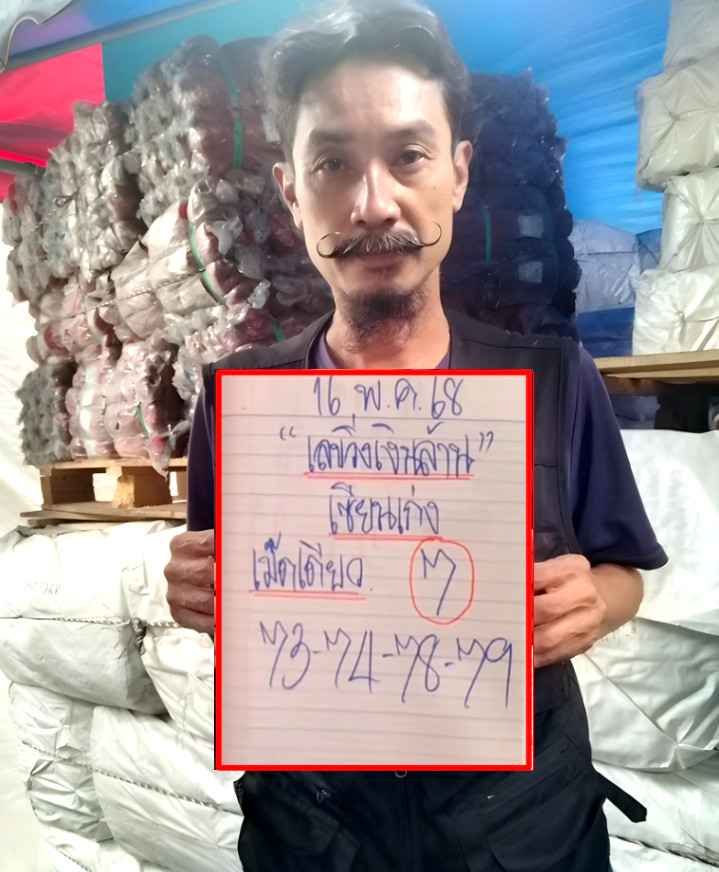 16 พ.ค. 68
"เลขวิ่งเงินล้าน"
เซียนเก่ง
เม็ดเดียว 7
73-74-78-79